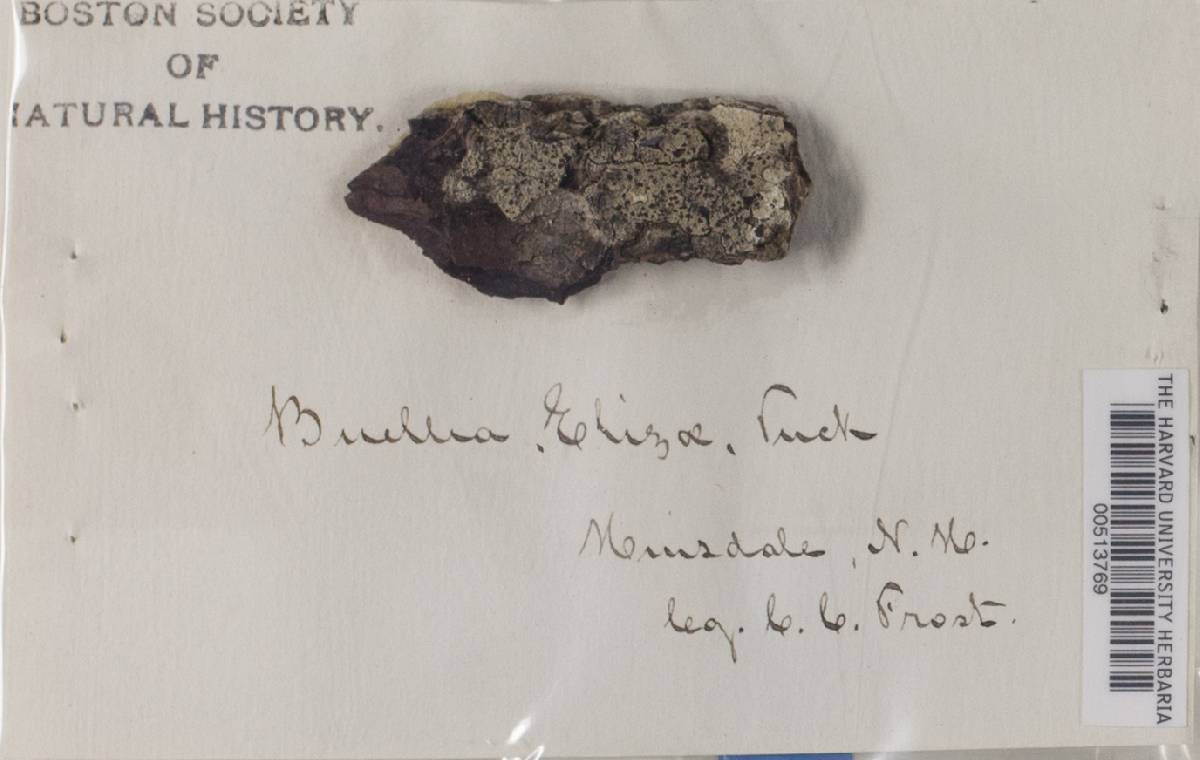 BOSTON SOCIETY
OF
NATURAL HISTORY.
Buellia Elizæ, Tuck
Hinsdale, N.H.
leg. C. C. Frost.
THE HARVARD UNIVERSITY HERBARIA
00513769